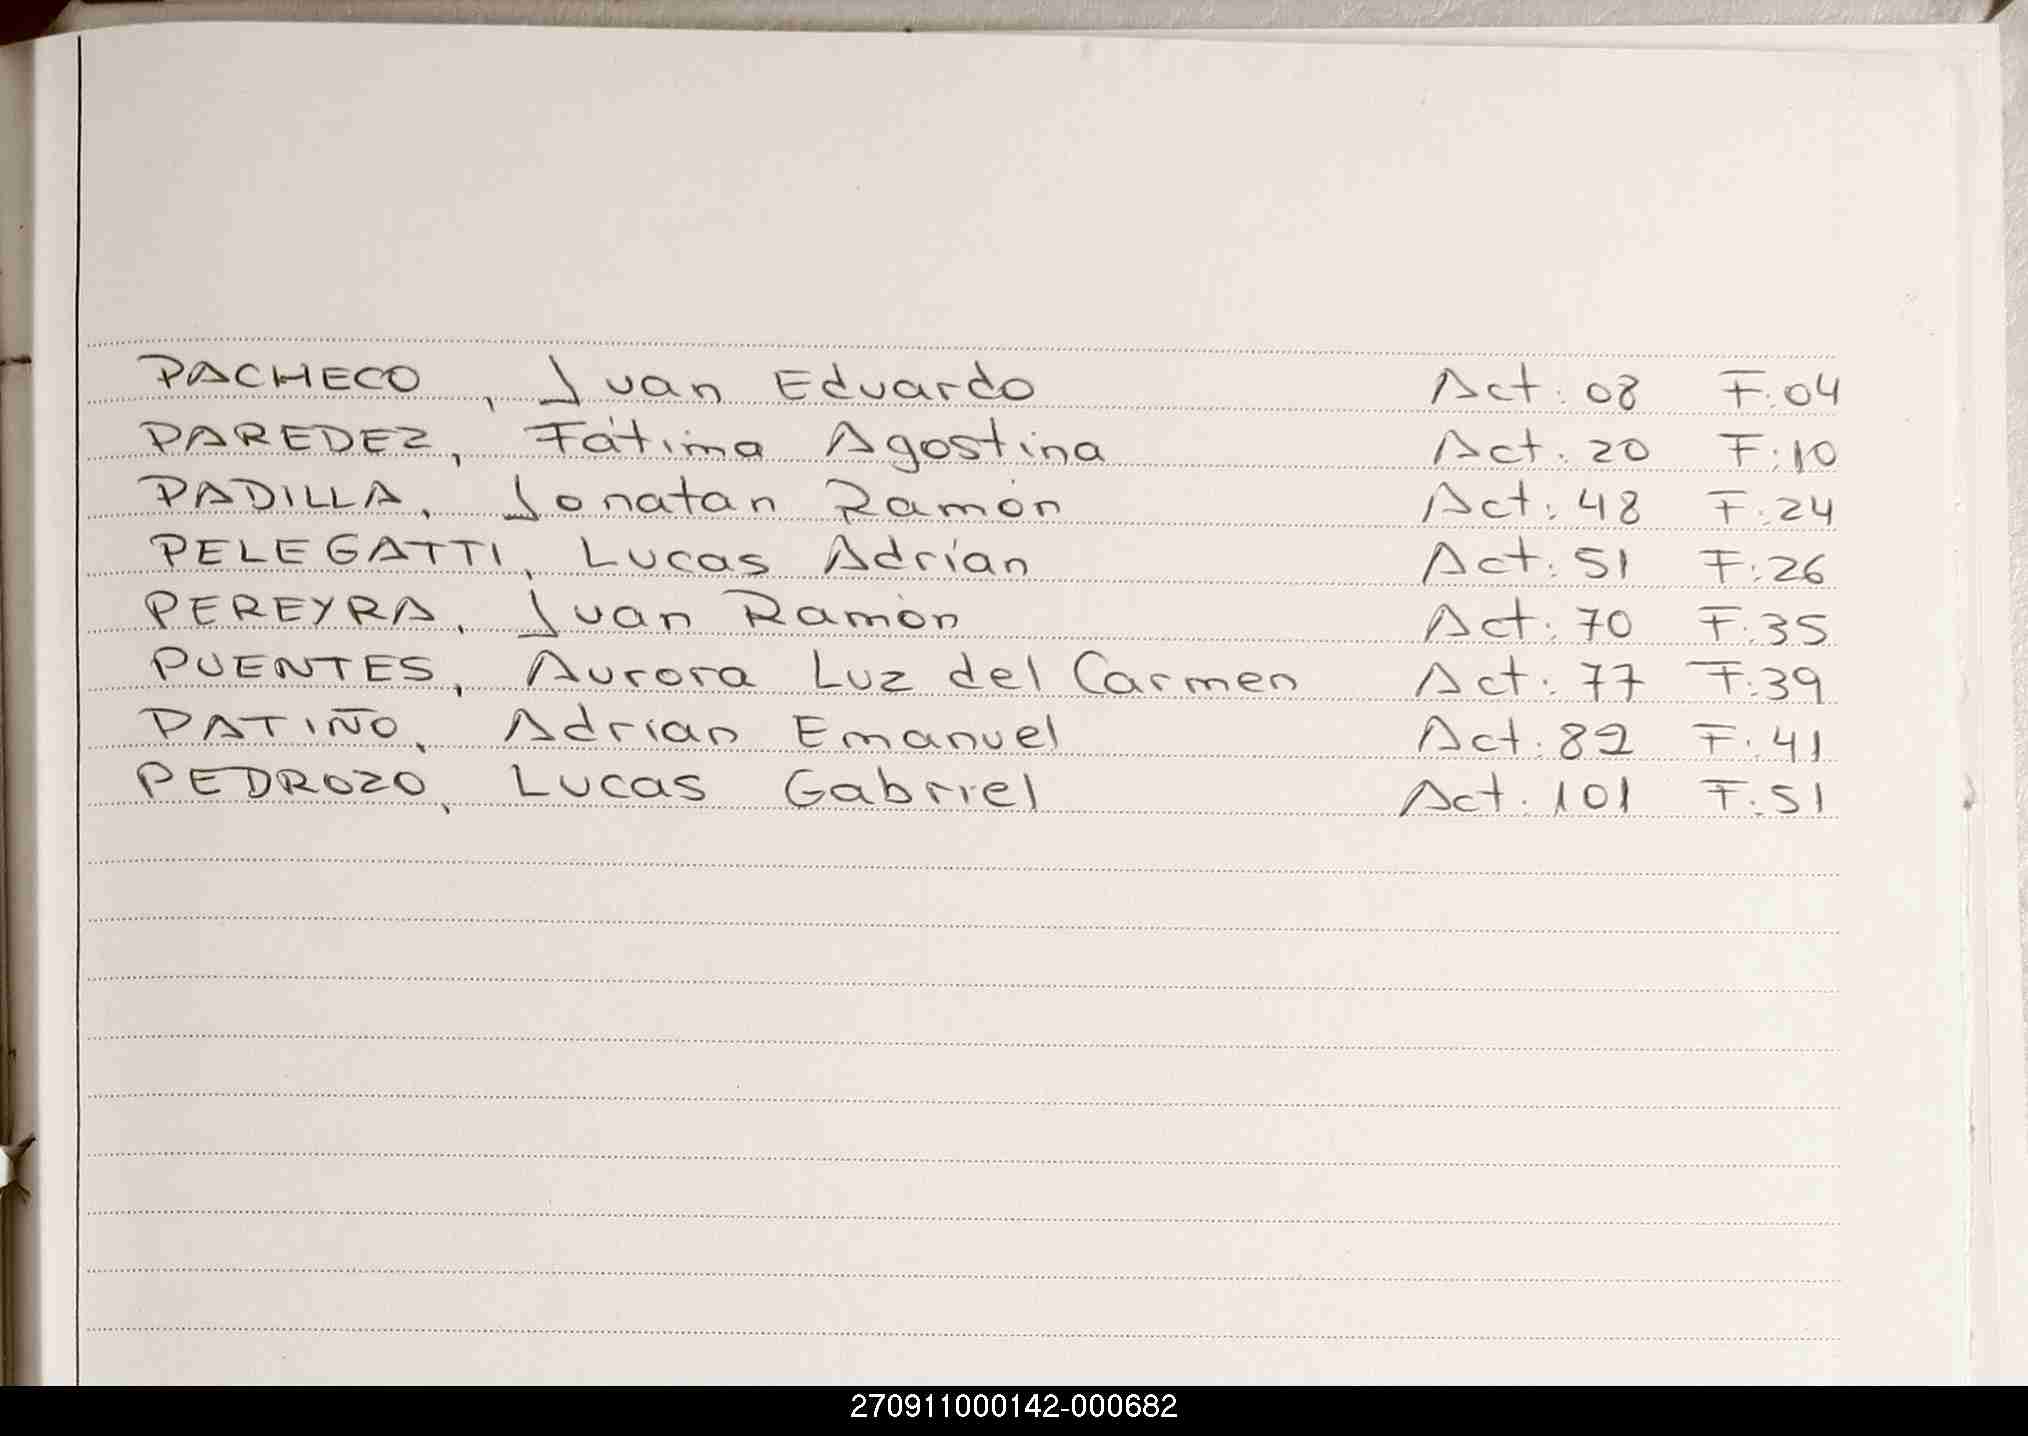 PACHECO, Juan Eduardo Act: 08 F:04
PAREDEZ, Fátima Agostina Act: 20 F:10
PADILLA, Jonatan Ramón Act: 48 F:24
PELEGATTI, Lucas Adrían Act: 51 F:26
PEREYRA, Juan Ramón Act: 70 F:35
PUENTES, Aurora Luz del Carmen Act: 77 F:39
PATIÑO, Adrian Emanuel Act: 82 F:41
PEDROZO, Lucas Gabriel Act: 101 F:51
270911000142-000682